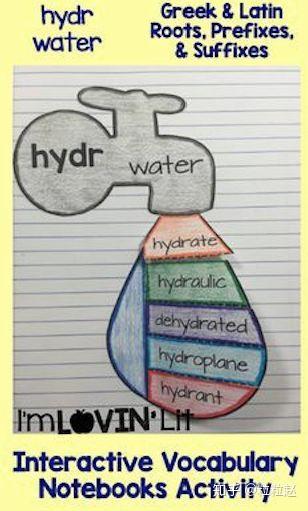 hydr
water
Greek & Latin
Roots, Prefixes,
& Suffixes
hydr
water
hydrate
hydraulic
dehydrated
hydroplane
hydrant
I'm LOVIN' Lit
Interactive Vocabulary
Notebooks Activity
知乎 @拉拉赵